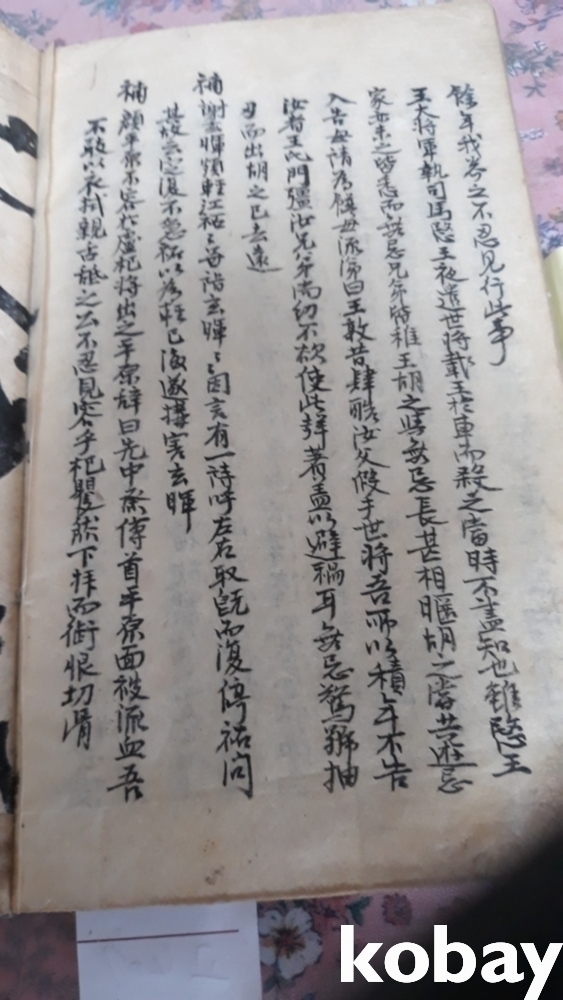 餘年我岑之不忍見行此事
王大將軍執司馬愍王夜遣世將載王於車而殺之當時不盡知也雖愍王
家亦未之皆悉而無忌兄弟皆稚王胡之與無忌長甚相暱胡之嘗共遊無忌
入告母請爲饌母流涕曰王敦昔肆酷汝父假手世將吾所以積年不告
汝者王氏門彊汝兄弟尚幼不欲使此聲著盖以避禍耳無忌驚號抽
刃而出胡之已去遠
補 謝玄暉頗輕江祏祏每詣玄暉暉因言有一詩呼左右取旣而復停祏問
其故云定復不急祏以爲輕已後遂搆害玄暉
補 顔平原不容代盧杞將出之平原辭曰先中丞傳首平原面被流血吾
不敢以衣拭親舌舐之公不忍見容乎杞矍然下拜而銜恨切骨
kobay